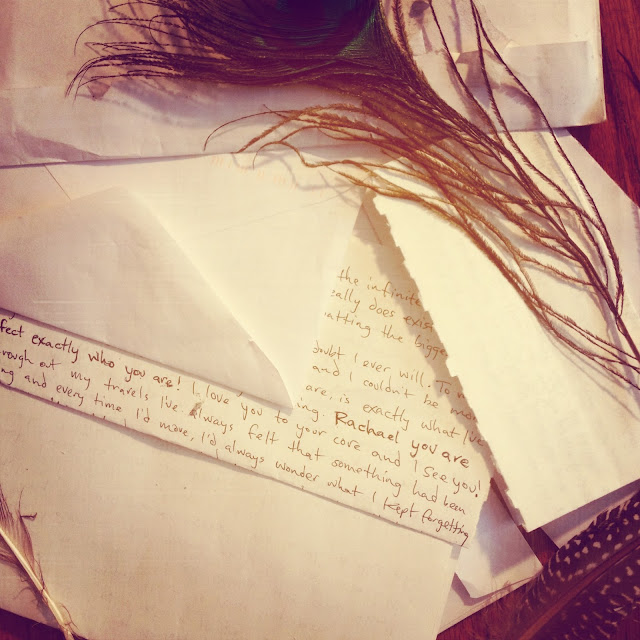 the infinite
ally does
atting the bigge
oubt I ever will. To
and I couldn't be
are, is exactly what I've
ng. Rachael you are
fect exactly who you are! I love you to your core and I see you!
roughout my travels I've always felt that something had been
g and every time I'd move, I'd always wonder what I kept forgetting